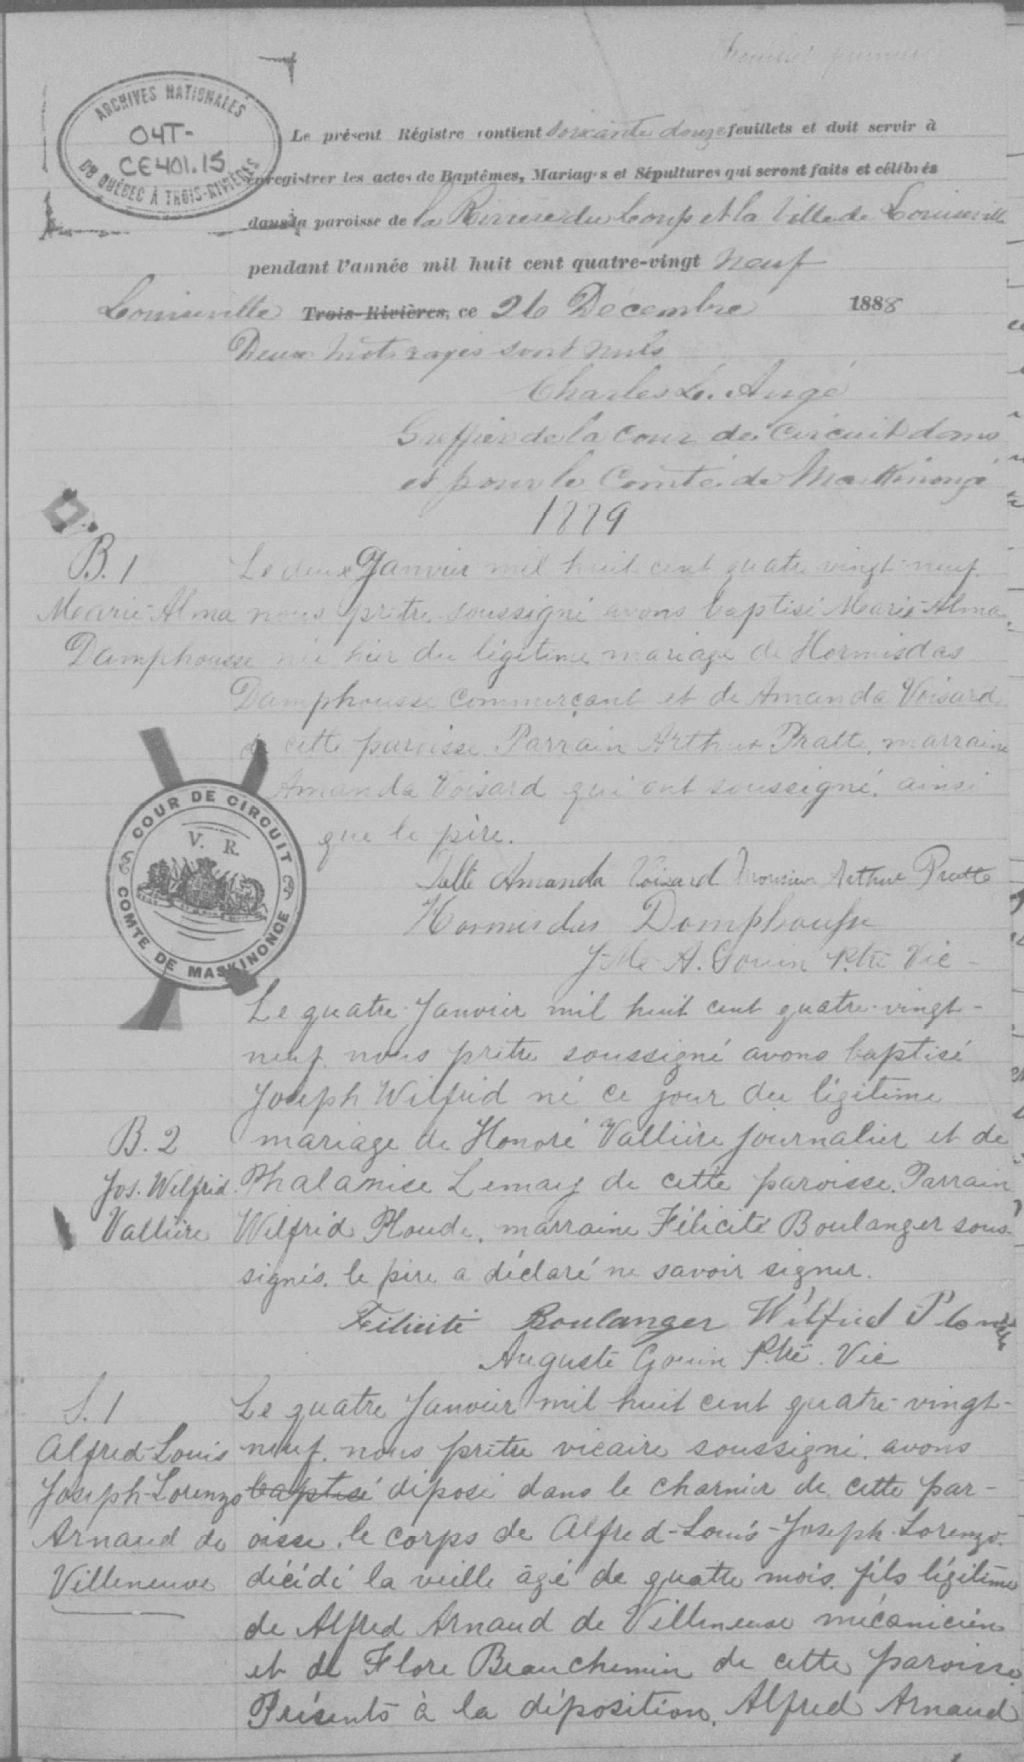 ARCHIVES NATIONALES
04T-
CE401.15
DU QUÉBEC À TROIS-RIVIÈRES
Le présent Régistre contient soixante douze feuillets et doit servir à
enregistrer les actes de Baptêmes, Mariages et Sépultures qui seront faits et célébrés
dans la paroisse de la Rivière du Loup et la Ville de Louiseville
pendant l'année mil huit cent quatre-vingt neuf
Louiseville Trois-Rivières, ce 26 Décembre 1888
Deux mots rayés sont nuls
Charles L. Augé
Greffier de la Cour de Circuit dans
et pour le Comté de Maskinongé
1889
B. 1
Marie-Alma
Damphousse
Le deux Janvier mil huit cent quatre vingt-neuf
nous prêtre soussigné avons baptisé Marie-Alma
née hier du légitime mariage de Hermisdas
Damphousse commerçant et de Amanda Voisard
de cette paroisse. Parrain Arthur Pratte, marraine
Amanda Voisard qui ont soussigné, ainsi
que le père.
COUR DE CIRCUIT
V. R.
COMTE DE MASKINONGE
Amanda Voisard Arthur Pratte
Hormisdas Domphousse
J-Me A. Gouin Ptre Vic
Le quatre Janvier mil huit cent quatre-vingt-
neuf nous prêtre soussigné avons baptisé
Joseph Wilfrid né ce jour du légitime
B. 2
Jos. Wilfrid
Vallière
mariage de Honoré Vallière journalier et de
Phalanise Lemay de cette paroisse. Parrain
Wilfrid Ploude, marraine Félicité Boulanger sous-
signés. le père a déclaré ne savoir signer.
Félicité Boulanger Wilfrid
Auguste Gouin Ptre. Vic
S. 1
Alfred-Louis
Joseph-Lorenzo
Arnaud de
Villeneuve
Le quatre Janvier mil huit cent quatre-vingt-
neuf nous prêtre vicaire soussigné, avons
baptisé déposé dans le charnier de cette par-
oisse, le corps de Alfred-Louis-Joseph-Lorenzo
décédé la veille âgé de quatre mois, fils légitime
de Alfred Arnaud de Villeneuve mécanicien
et de Flore Beauchemin de cette paroisse.
Présents à la déposition, Alfred Arnaud